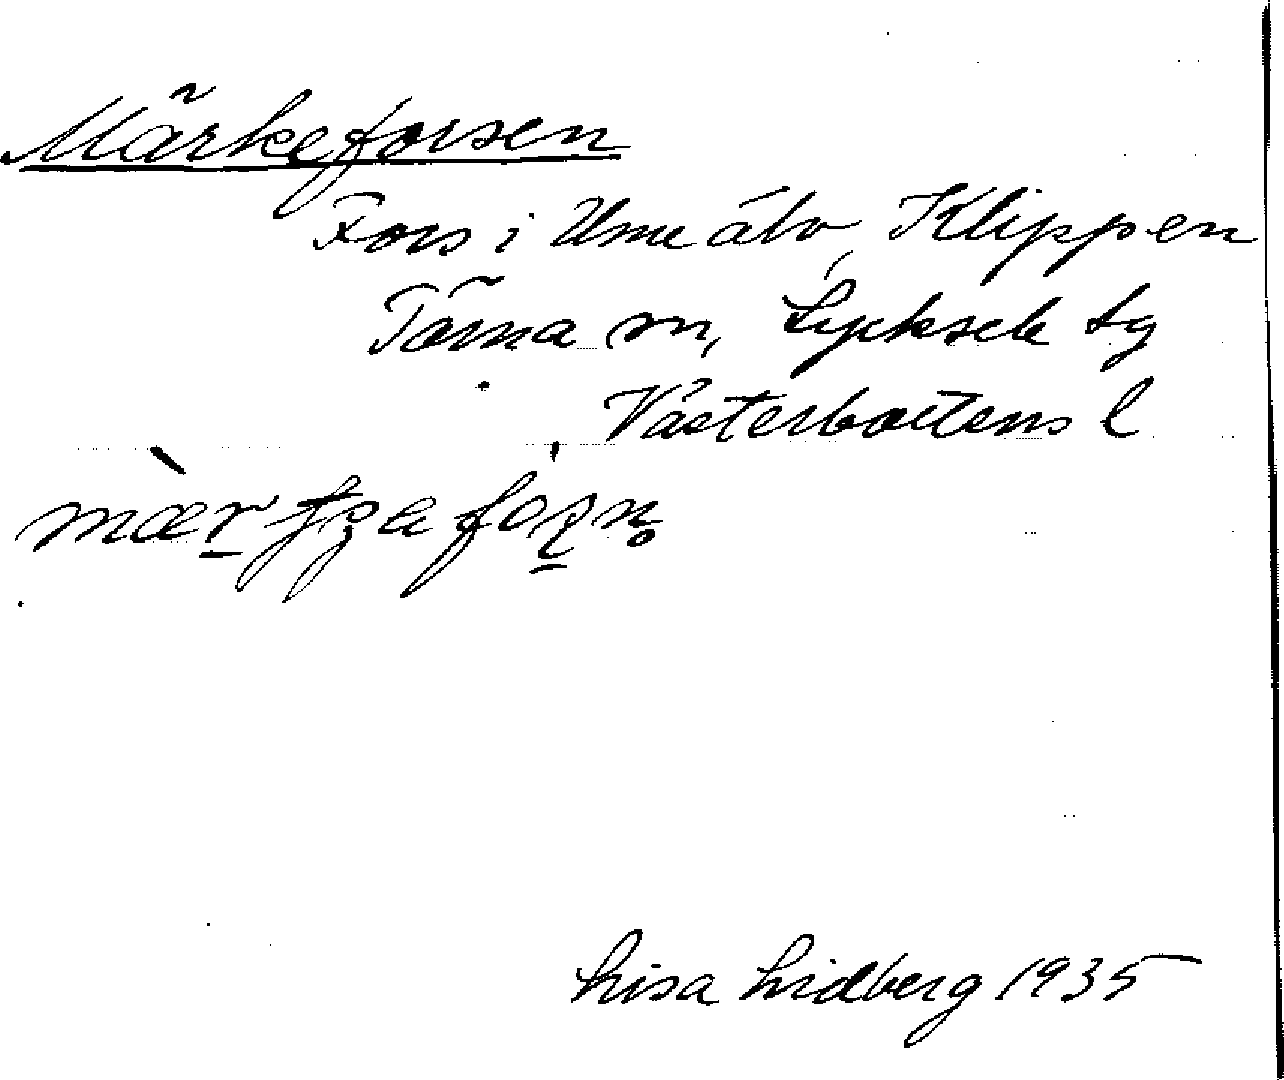 Märkeforsen
Fors i Ume älv, Klippen
Tärna sn, Lycksele tg
Västerbottens l
Lisa Lidberg 1935